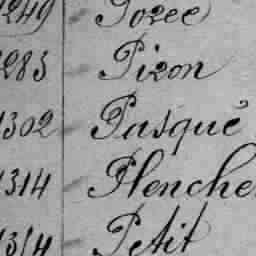 1249 Pozee
1283 Pizon
1302 Pasqué
1314 Plenche
1314 Petit